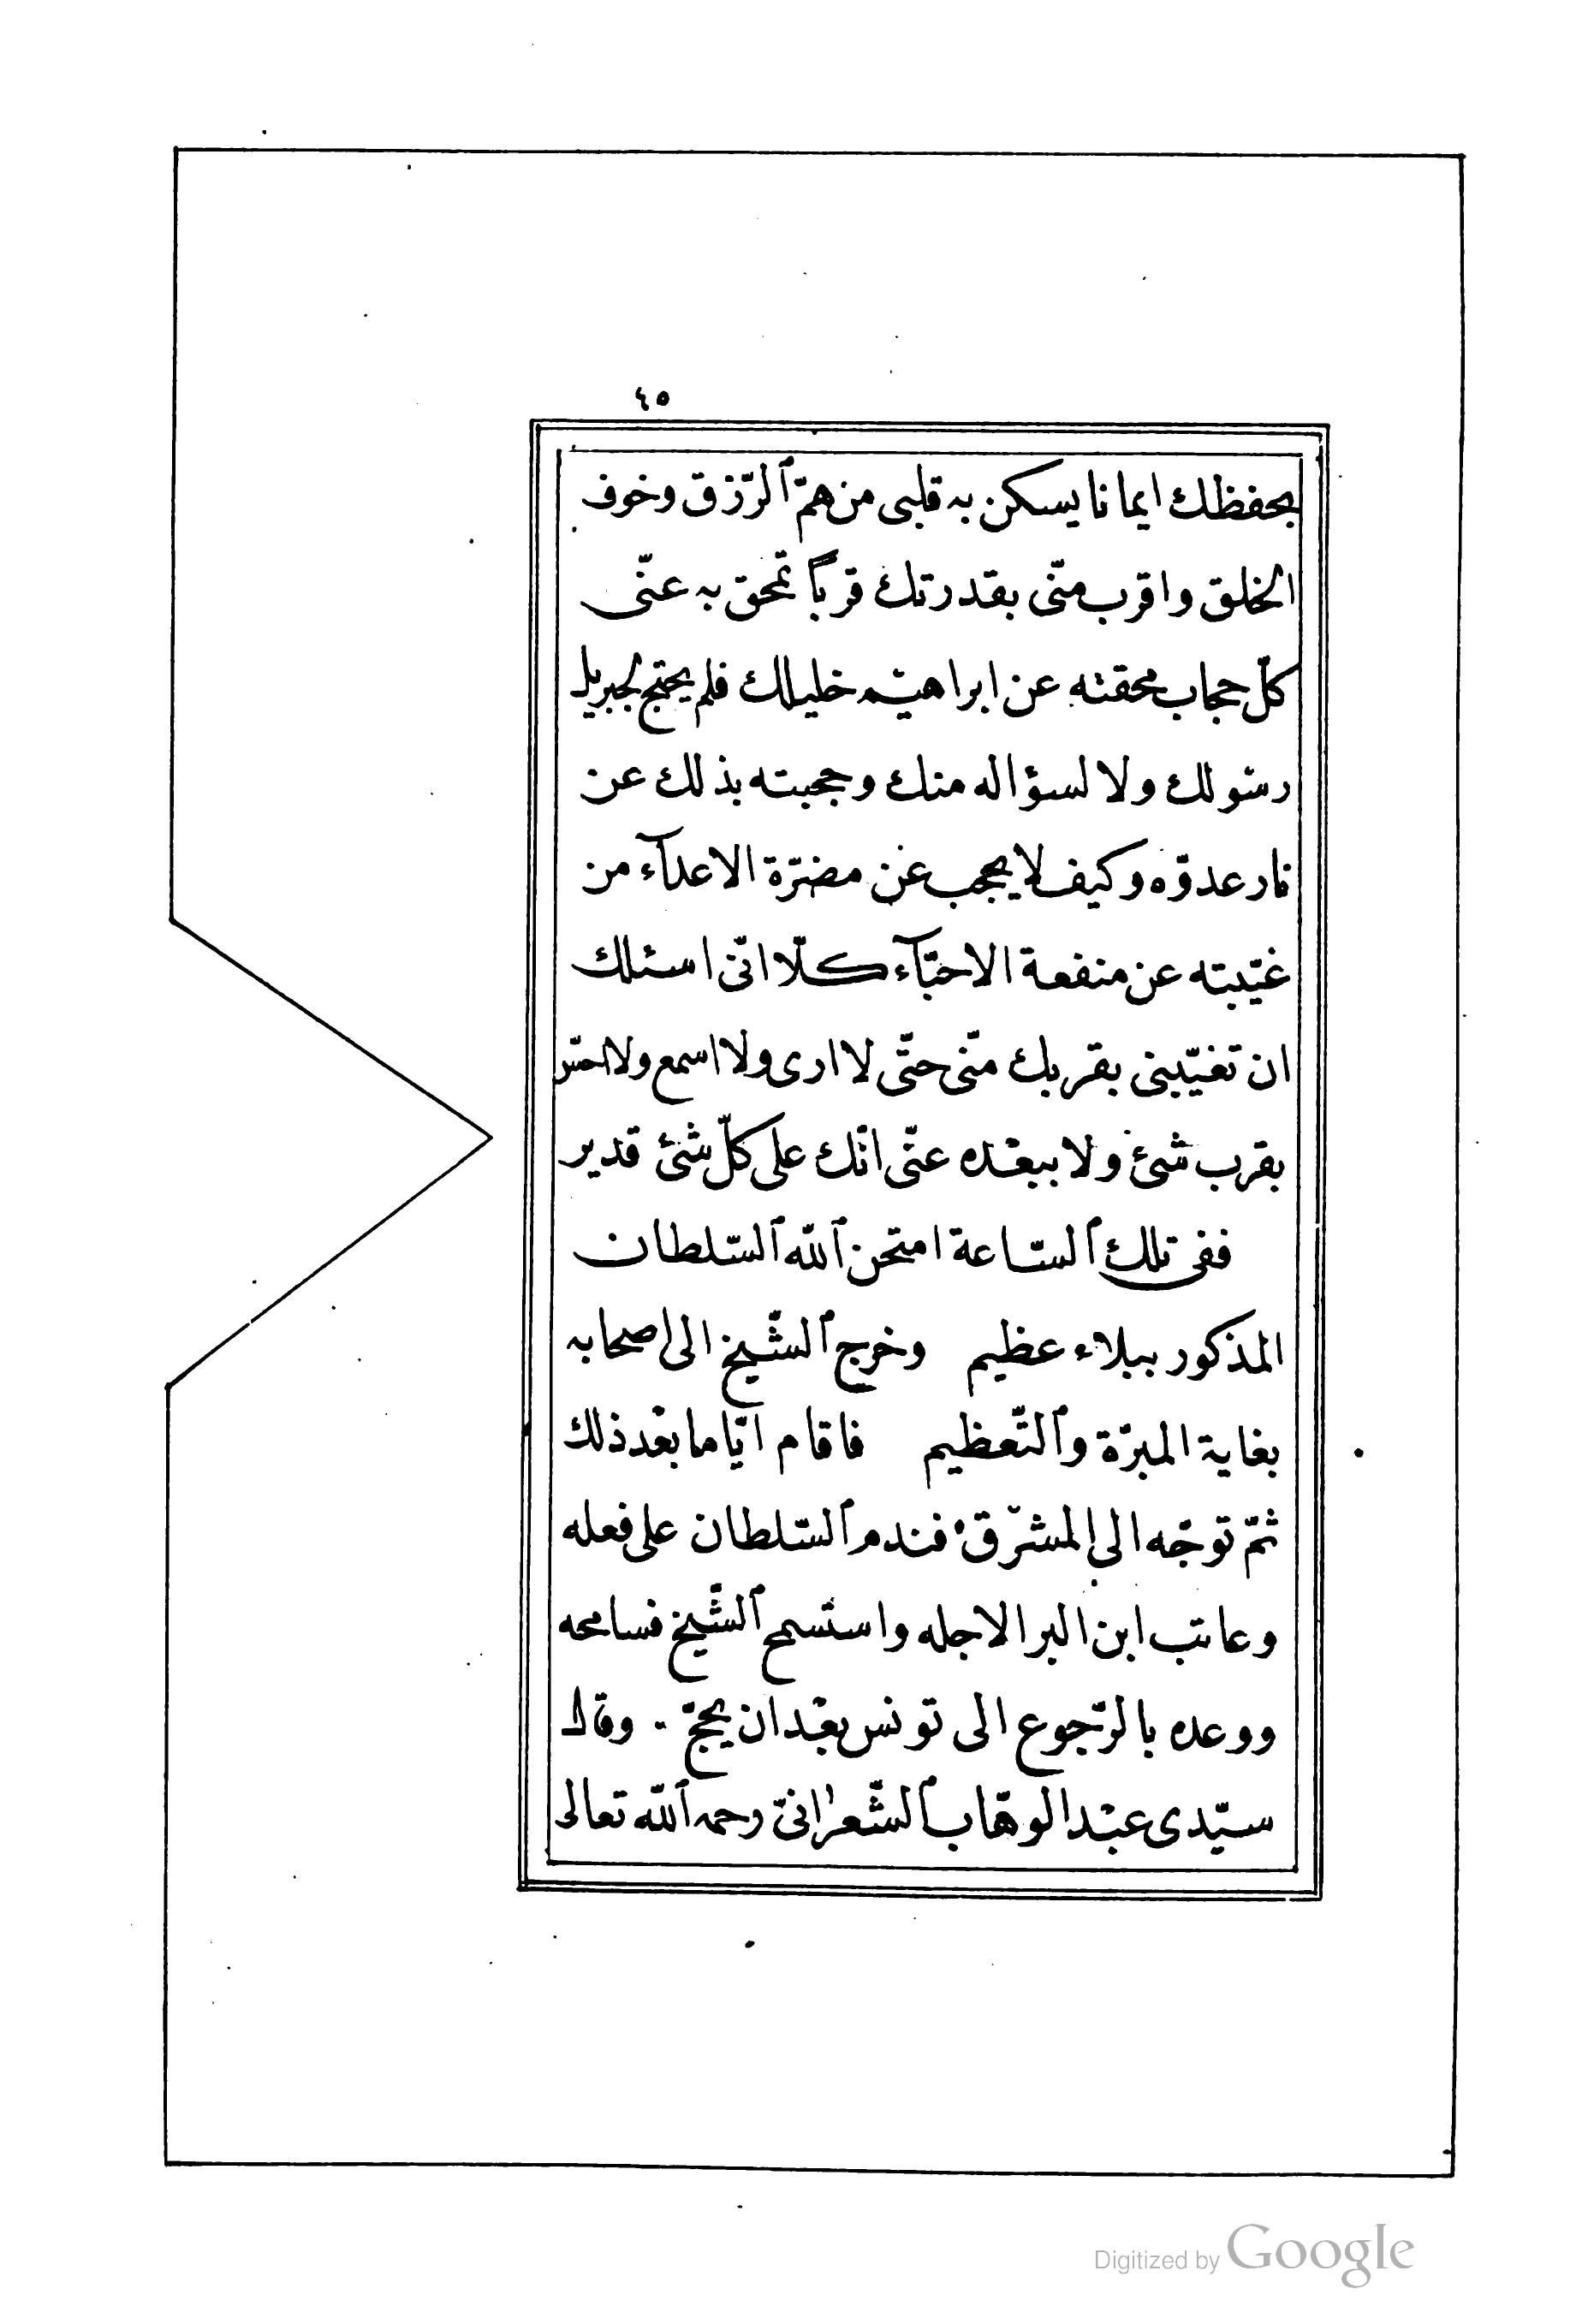 ٤٥
بحفظك ايمانا يسكن به قلبى من همّ ٱلرّزق وخوف
الخلق واقرب منّى بقدرتك قربًا تمحق به عنّى
كلّ حجاب محقته عن ابراهيم خليلك فلم يحتج لجبريل
رسولك ولا لسؤاله منك وحجبته بذلك عن
نار عدوّه وكيف لا يحجب عن مضرّة الاعدآء من
غيّبته عن منفعة الاحبّآء كلّا انّى اسئلك
ان تغيّبنى بقربك منّى حتّى لا ارى ولا اسمع ولا احسّ
بقرب شئ ولا ببعْده عنّى انّك على كلّ شئ قدير
ففى تلك ٱلسّاعة امتحن ٱللّه ٱلسّلطان
المذكور ببلاء عظيم وخرج ٱلشّيخ الى اصحابه
بغاية المبرّة وٱلتّعظيم فاقام ايّاما بعْد ذلك
ثمّ توجّه الى المشرق فندم ٱلسّلطان على فعله
وعاتب ابن البرا لاجله واستسمح ٱلشّيخ فسامحه
ووعده بالرّجوع الى تونس بعْد ان يحجّ . وقال
سيّدى عبْد الوهّاب ٱلشّعرانىّ رحمه ٱللّه تعالى
Digitized by Google